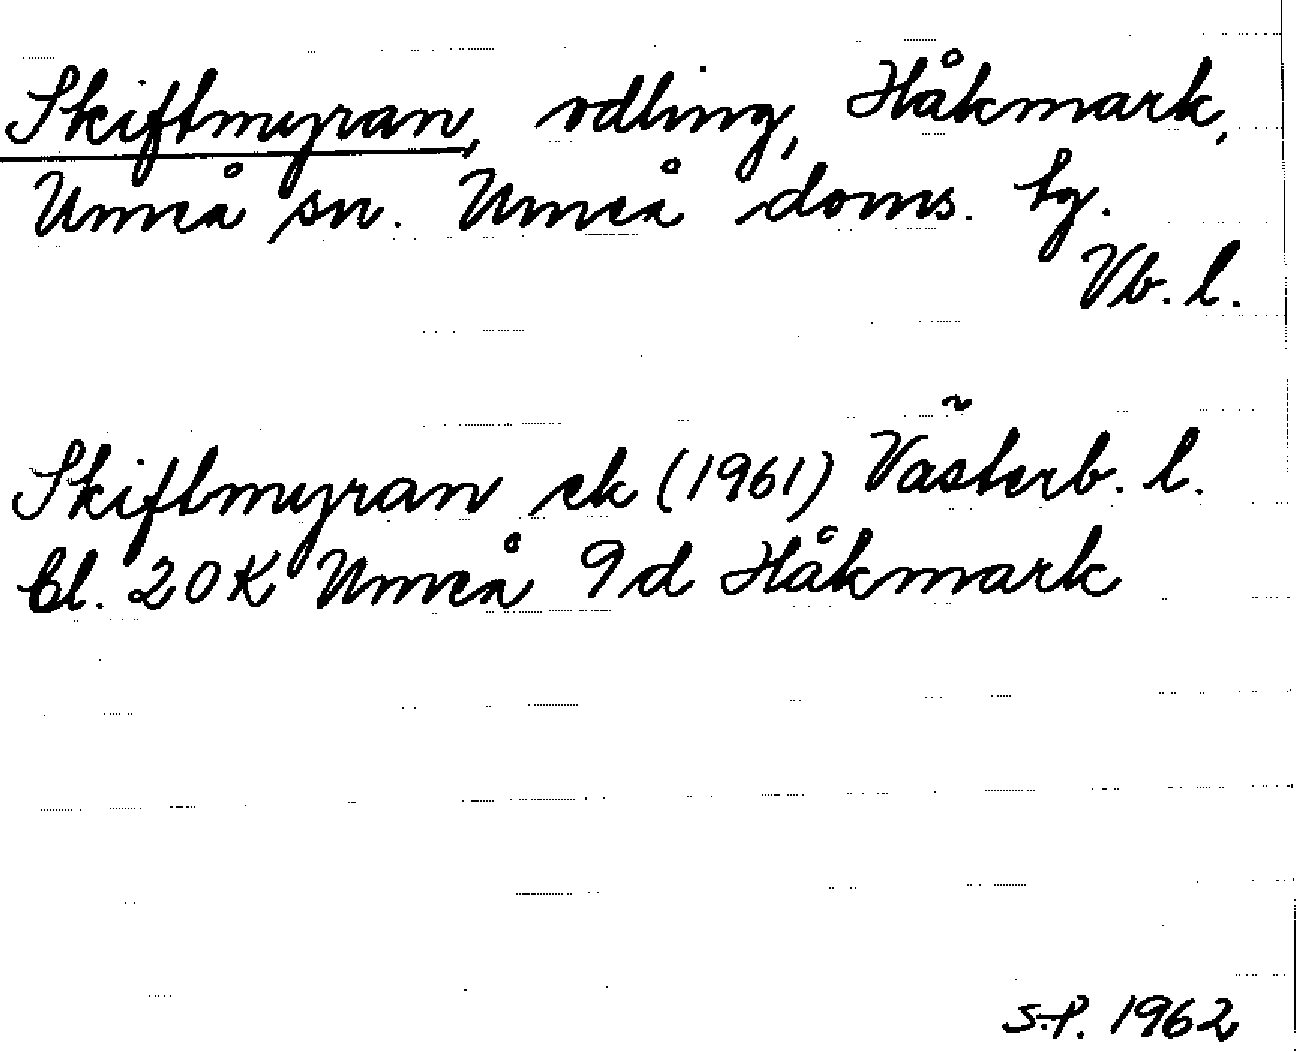 Skiftmyran, odling, Håkmark,
Umeå sn. Umeå doms. tg.
Vb. l.
Skiftmyran ek (1961) Västerb. l.
bl. 20K Umeå 9d Håkmark
S.P. 1962